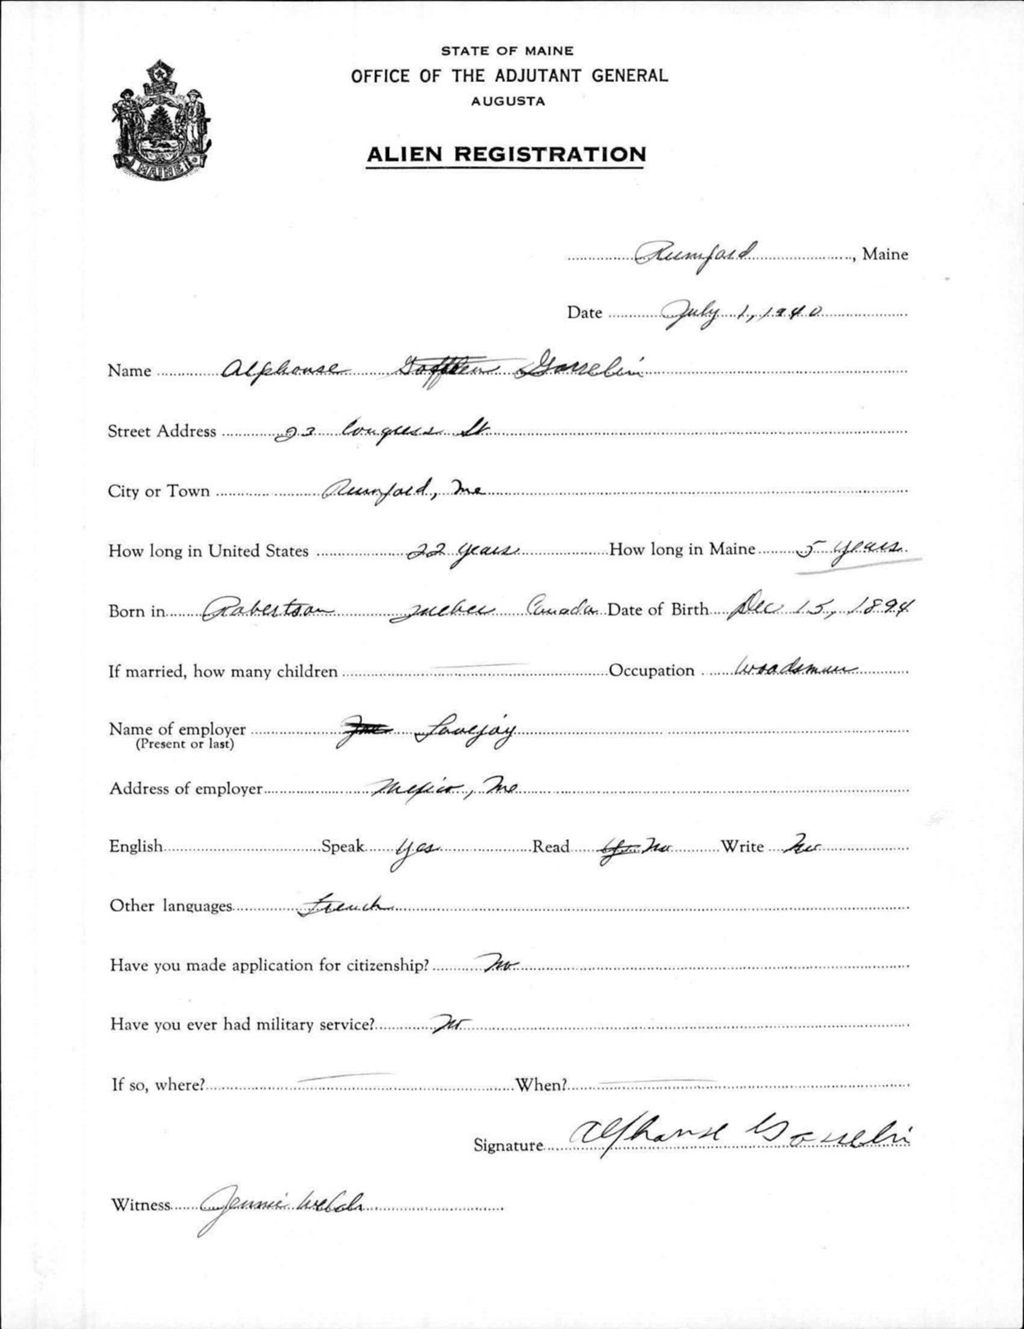 STATE OF MAINE
OFFICE OF THE ADJUTANT GENERAL
AUGUSTA
ALIEN REGISTRATION
MAINE
Rumford, Maine
Date July 1, 1940
Name Alphonse Gosselin
Street Address 23 Congress St
City or Town Rumford, Me
How long in United States 22 years How long in Maine 5 years
Born in Robertson Quebec Canada Date of Birth Dec 15, 1894
If married, how many children Occupation Woodsman
Name of employer Lovejoy
(Present or last)
Address of employer Mexico, Me
English Speak Yes Read No Write No
Other languages French
Have you made application for citizenship? No
Have you ever had military service? No
If so, where? When?
Signature Alphonse Gosselin
Witness Jennie Welch